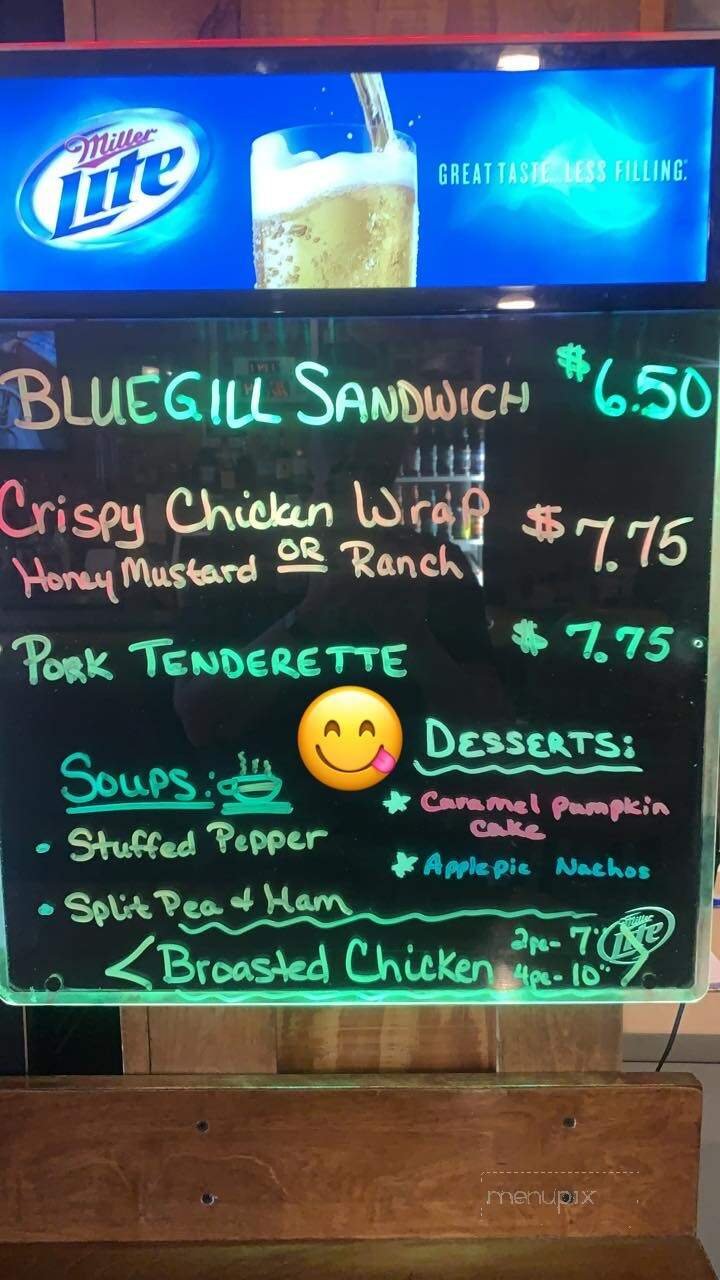 Miller
Lite
GREAT TASTE. LESS FILLING.
BLUEGILL SANDWICH $6.50
Crispy Chicken Wrap $7.75
Honey Mustard OR Ranch
PORK TENDERETTE $7.75
DESSERTS:
Caramel pumpkin
cake
Applepie Nachos
SOUPS:
Stuffed Pepper
Split Pea & Ham
Broasted Chicken 2pc- 7"
4pc- 10"
Miller
Lite
menupix